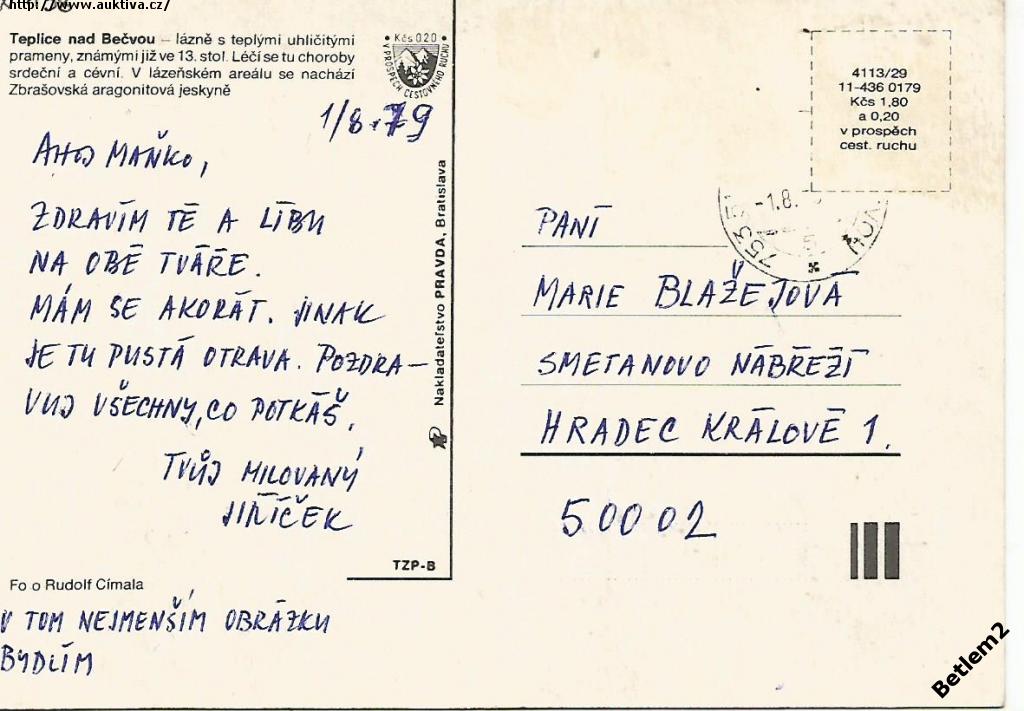 http://www.auktiva.cz/
Teplice nad Bečvou – lázně s teplými uhličitými
prameny, známými již ve 13. stol. Léčí se tu choroby
srdeční a cévní. V lázeňském areálu se nachází
Zbrašovská aragonitová jeskyně
Kčs 0,20
V PROSPĚCH CESTOVNÉHO RUCHU
1/8.79
AHOJ MAŇKO,
ZDRAVÍM TĚ A LÍBU
NA OBĚ TVÁŘE.
MÁM SE AKORÁT. JINAK
JE TU PUSTÁ OTRAVA. POZDRA–
VUJ VŠECHNY, CO POTKÁŠ.
TVŮJ MILOVANÝ
JIŘÍČEK
TZP-B
Fo o Rudolf Címala
V TOM NEJMENŠÍM OBRÁZKU
BYDLÍM
Nakladateľstvo PRAVDA, Bratislava
4113/29
11-436 0179
Kčs 1,80
a 0,20
v prospěch
cest. ruchu
-1.8.
PANÍ
MARIE BLAŽEJOVÁ
SMETANOVO NÁBŘEŽÍ
HRADEC KRÁLOVÉ 1.
50002
Betlem2